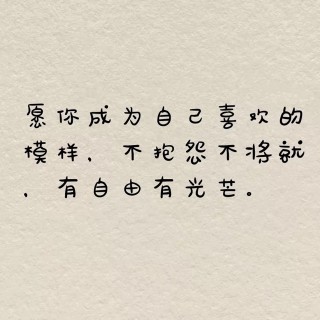 愿你成为自己喜欢的
模样，不抱怨不将就
，有自由有光芒。